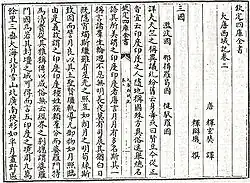 欽定四庫全書
大唐西域記卷二
唐 釋玄奘 譯
釋辯機 撰
三國
濫波國 那揭羅曷國 健馱羅國
詳夫天竺之稱異議糺紛舊云身毒或曰賢豆今從正
音宜云印度印度之人隨地稱國殊方異俗遙舉總名
語其所美謂之印度印度者唐言月月有多名斯其一
稱言諸羣生輪迴不息無明長夜莫有司晨其猶白日
既隱宵燭斯繼雖有星光之照豈如朗月之明苟緣斯
致因而譬月良以其土聖賢繼軌導凡御物如月照臨
由是義故謂之印度印度種姓族類羣分而婆羅門特
為清貴從其雅稱傳以成俗無云經界之別總謂婆羅
門國焉若其封疆之域可得而言五印度之境周九萬
餘里三垂大海北背雪山北廣南狹形如半月畫野區